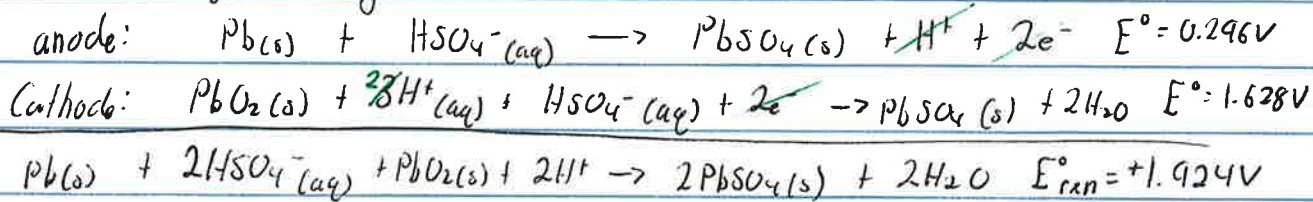 anode: Pb(s) + HSO₄⁻(aq) → PbSO₄(s) + H⁺ + 2e⁻ E° = 0.296V
Cathode: PbO₂(s) + 3H⁺(aq) + HSO₄⁻(aq) + 2e⁻ → PbSO₄(s) + 2H₂O E° = 1.628V
Pb(s) + 2HSO₄⁻(aq) + PbO₂(s) + 2H⁺ → 2PbSO₄(s) + 2H₂O E°rxn = +1.924V